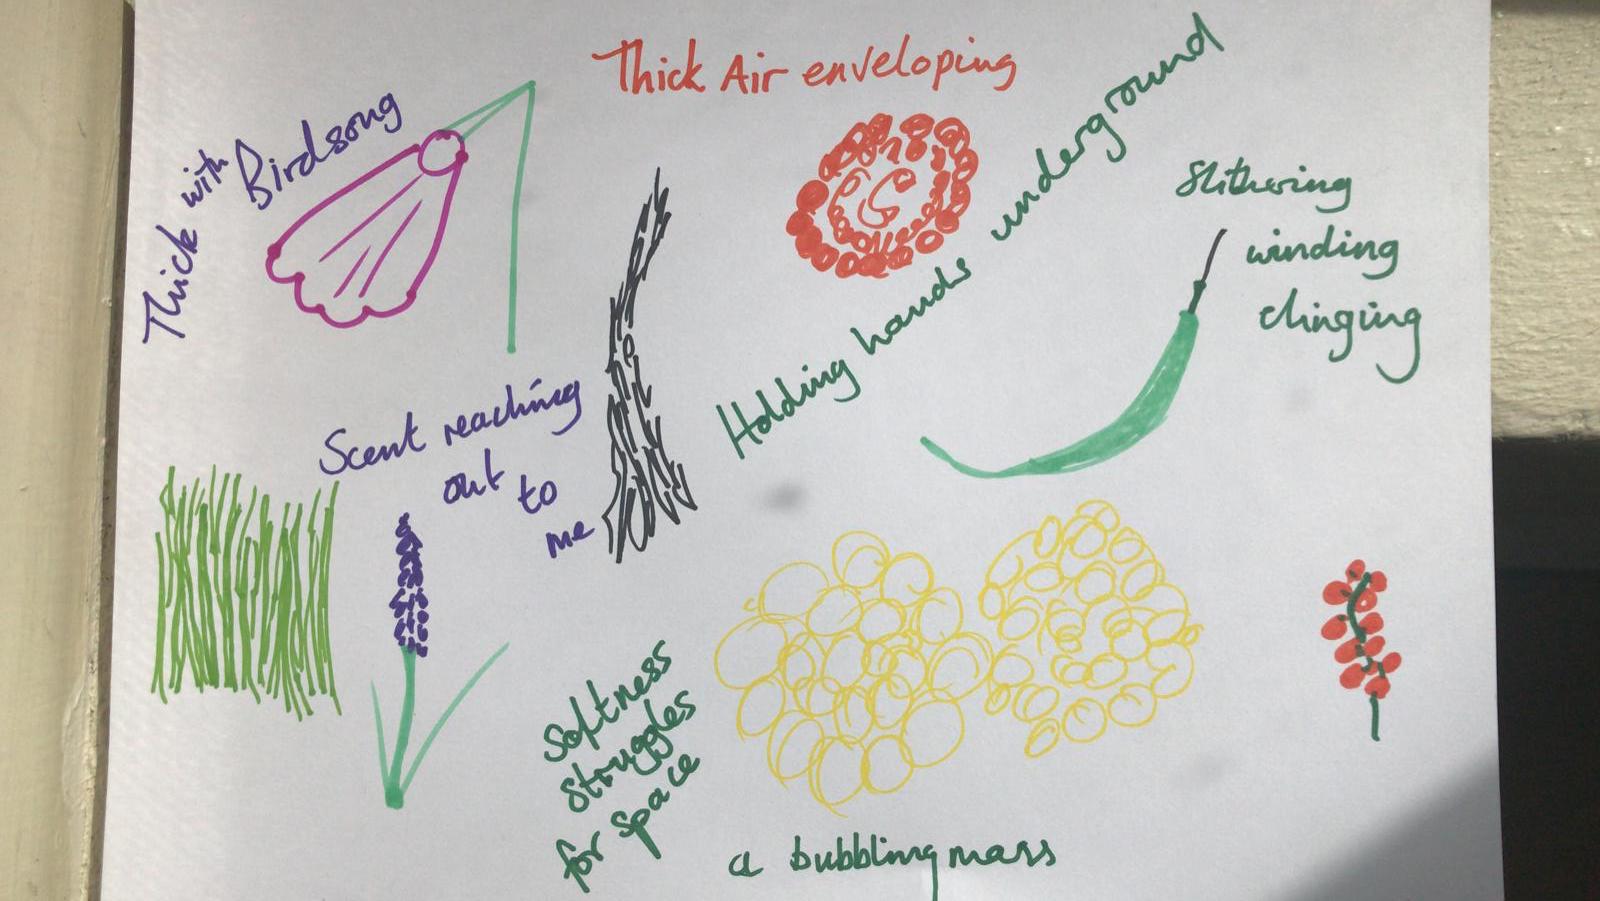 Thick Air enveloping
Thick with Birdsong
Holding hands underground
Slithering
winding
clinging
Scent reaching
out to
me
Softness
struggles
for space
a bubbling mass